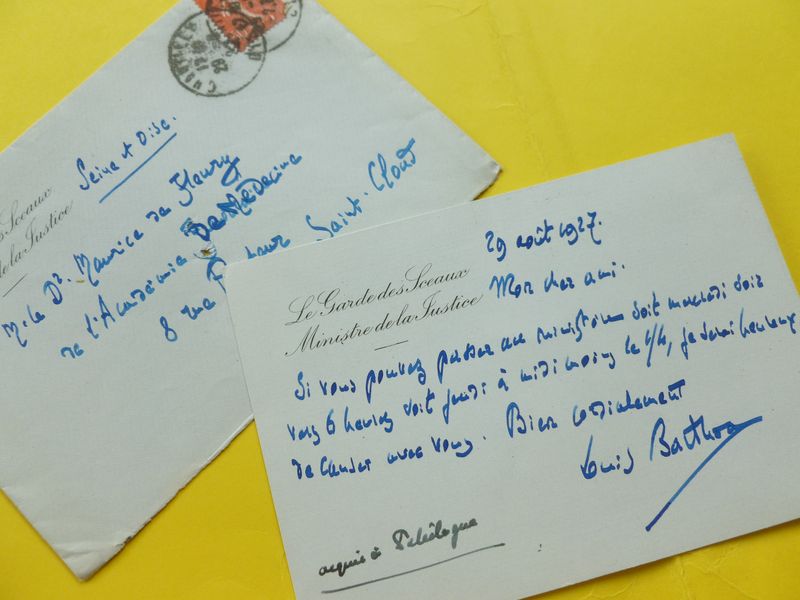 Seine et Oise.
Sceaux
de la Justice
M. le Dr. Maurice de Fleury
de l'Académie de Médecine
8 rue Saint-Cloud
Le Garde des Sceaux
Ministre de la Justice
29 août 1927.
Mon cher ami.
Si vous pouvez passer au ministère soit mercredi soir
vers 6 heures soit jeudi à midi moins le 1/4, je serai heureux
de causer avec vous. Bien cordialement
Louis Barthou
acquis à